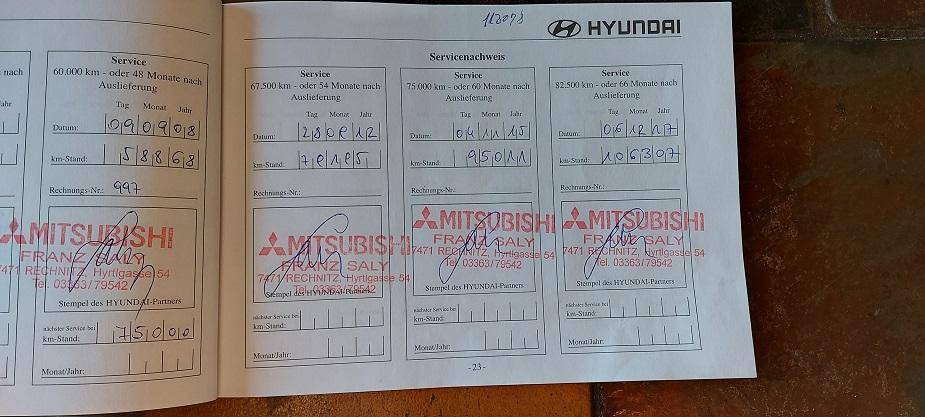 nach
ahr
Service
60.000 km - oder 48 Monate nach
Auslieferung
Tag Monat Jahr
Datum: 090908
km-Stand: 58868
Rechnungs-Nr.: 997
MITSUBISHI
FRANZ SALY
7471 RECHNITZ, Hyrtlgasse 54
Tel. 03363/79542
Stempel des HYUNDAI-Partners
nächster Service bei
km-Stand: 75000
Monat/Jahr:
HYUNDAI
Servicenachweis
Service
67.500 km - oder 54 Monate nach
Auslieferung
Tag Monat Jahr
Datum:
km-Stand:
Rechnungs-Nr.:
MITSUBISHI
FRANZ SALY
7471 RECHNITZ, Hyrtlgasse 54
Tel. 03363/79542
Stempel des HYUNDAI-Partners
nächster Service bei
km-Stand:
Monat/Jahr:
Service
75.000 km - oder 60 Monate nach
Auslieferung
Tag Monat Jahr
Datum: 041115
km-Stand: 95011
Rechnungs-Nr.:
MITSUBISHI
FRANZ SALY
7471 RECHNITZ, Hyrtlgasse 54
Tel. 03363/79542
Stempel des HYUNDAI-Partners
nächster Service bei
km-Stand:
Monat/Jahr:
Service
82.500 km - oder 66 Monate nach
Auslieferung
Tag Monat Jahr
Datum: 061217
km-Stand: 106307
Rechnungs-Nr.:
MITSUBISHI
FRANZ SALY
7471 RECHNITZ, Hyrtlgasse 54
Tel. 03363/79542
Stempel des HYUNDAI-Partners
nächster Service bei
km-Stand:
Monat/Jahr:
- 23 -